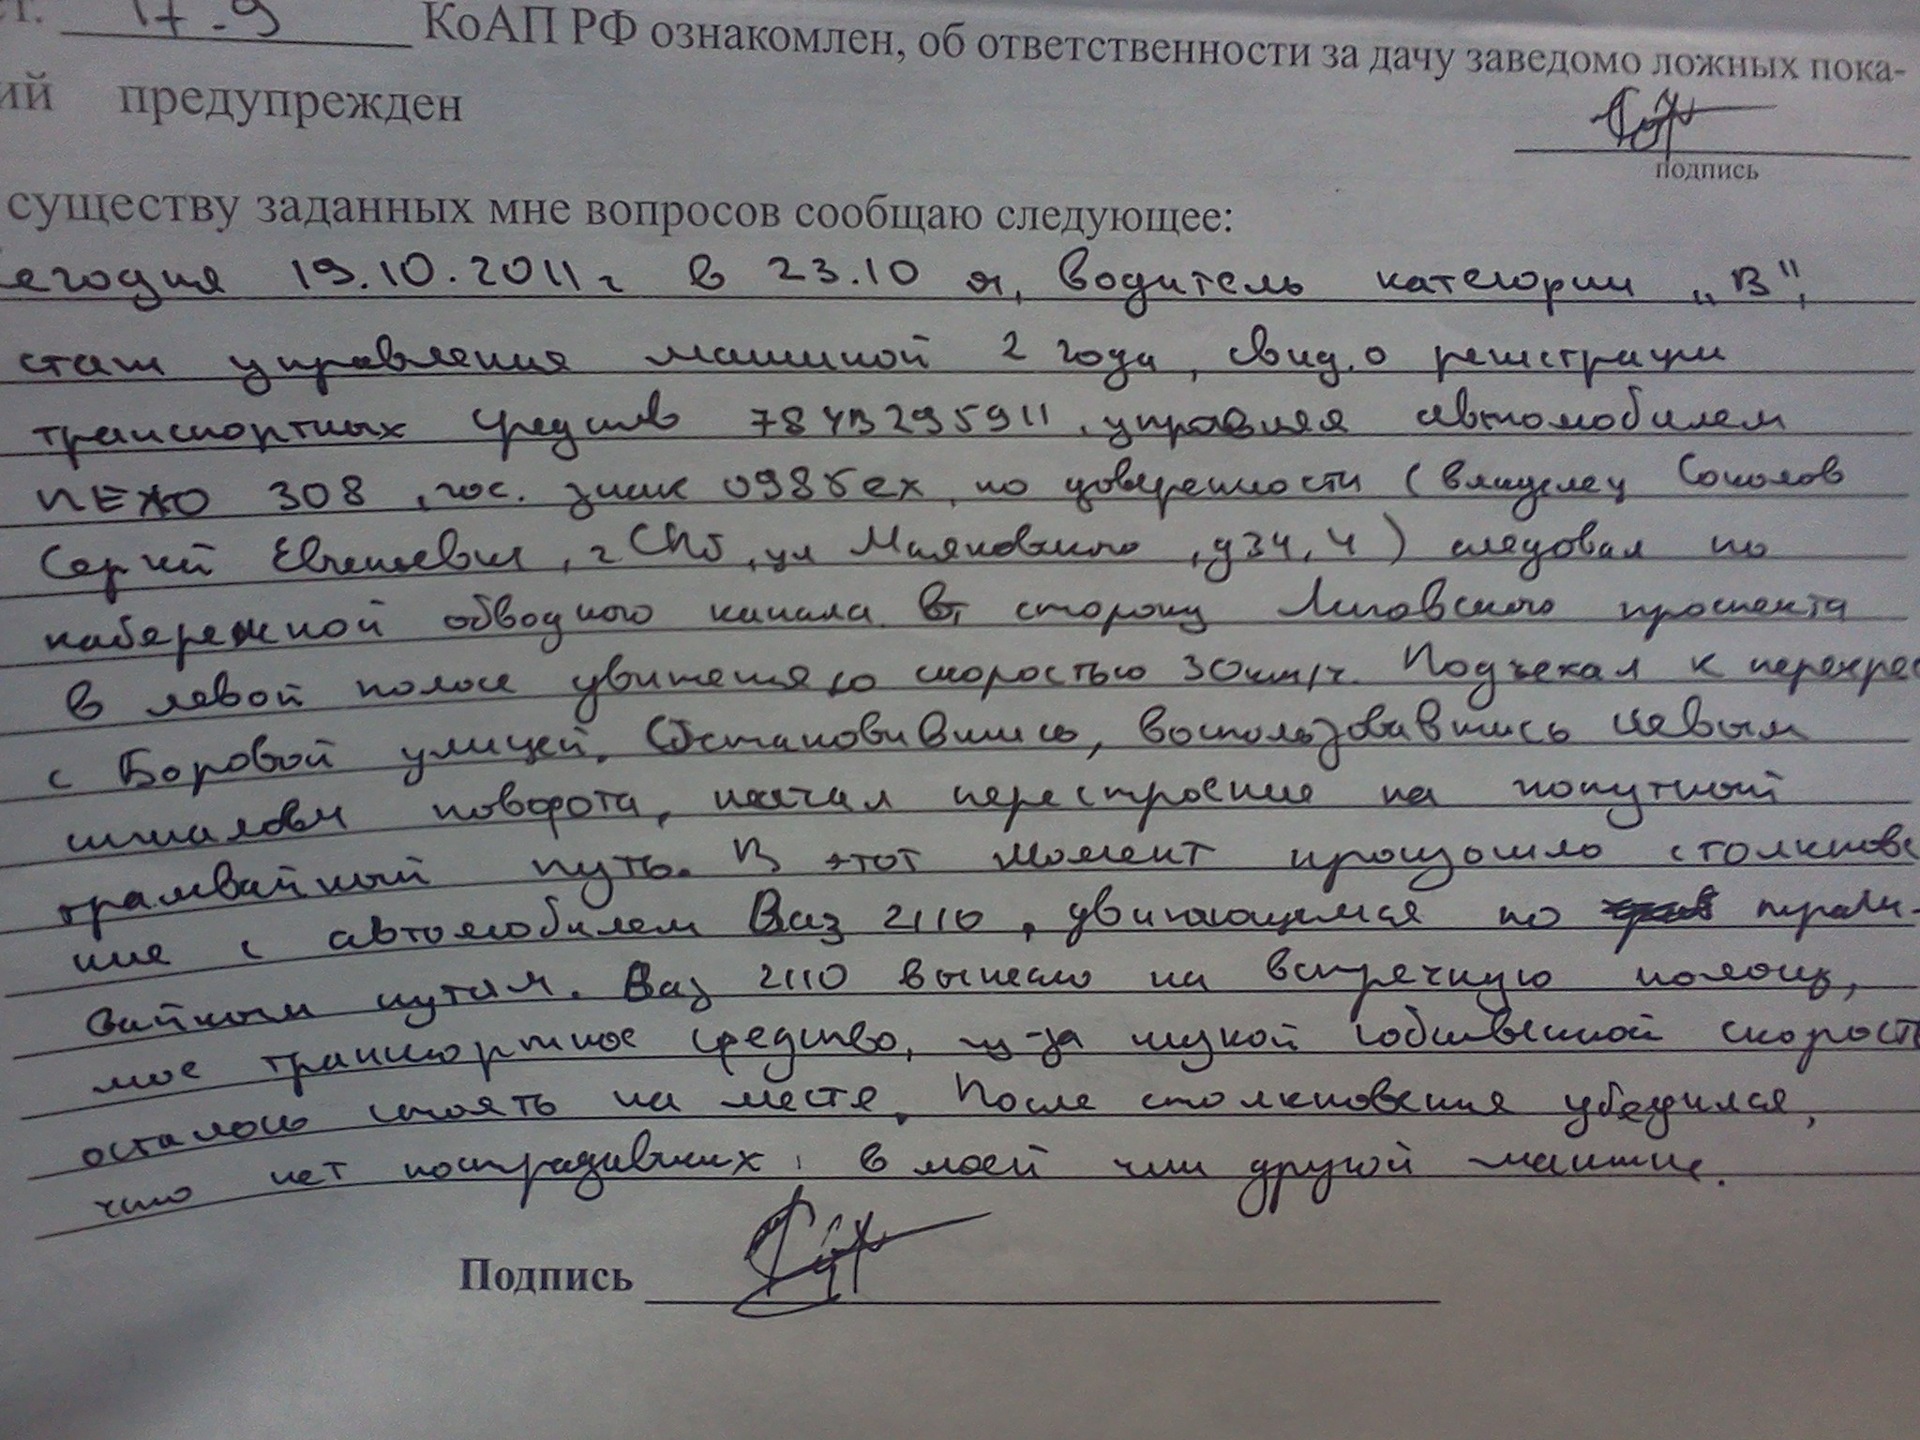 ст. 17.9 КоАП РФ ознакомлен, об ответственности за дачу заведомо ложных пока-
ий предупрежден
подпись
существу заданных мне вопросов сообщаю следующее:
Сегодня 19.10.2011г в 23.10 я, водитель категории „В",
стаж управления машиной 2 года, свид. о регистрации
транспортных средств 78УВ295911, управляя автомобилем
ПЕЖО 308, гос. знак О985ех, по доверенности (владелец Соколов
Сергей Евгеньевич, г СПб, ул Маяковского, д34, 4) следовал по
набережной обводного канала в сторону Лиговского проспекта
в левой полосе движения со скоростью 30км/ч. Подъехал к перекрес
с Боровой улицей. Остановившись, воспользовавшись левым
сигналом поворота, начал перестроение на попутный
трамвайный путь. В этот момент произошло столкнове
ние с автомобилем Ваз 2110, двигающимся по трам-
вайным путям. Ваз 2110 вынесло на встречную полосу,
мое транспортное средство, из-за низкой собственной скорости
осталось стоять на месте. После столкновения убедился,
что нет пострадавших в моей или другой машине.
Подпись